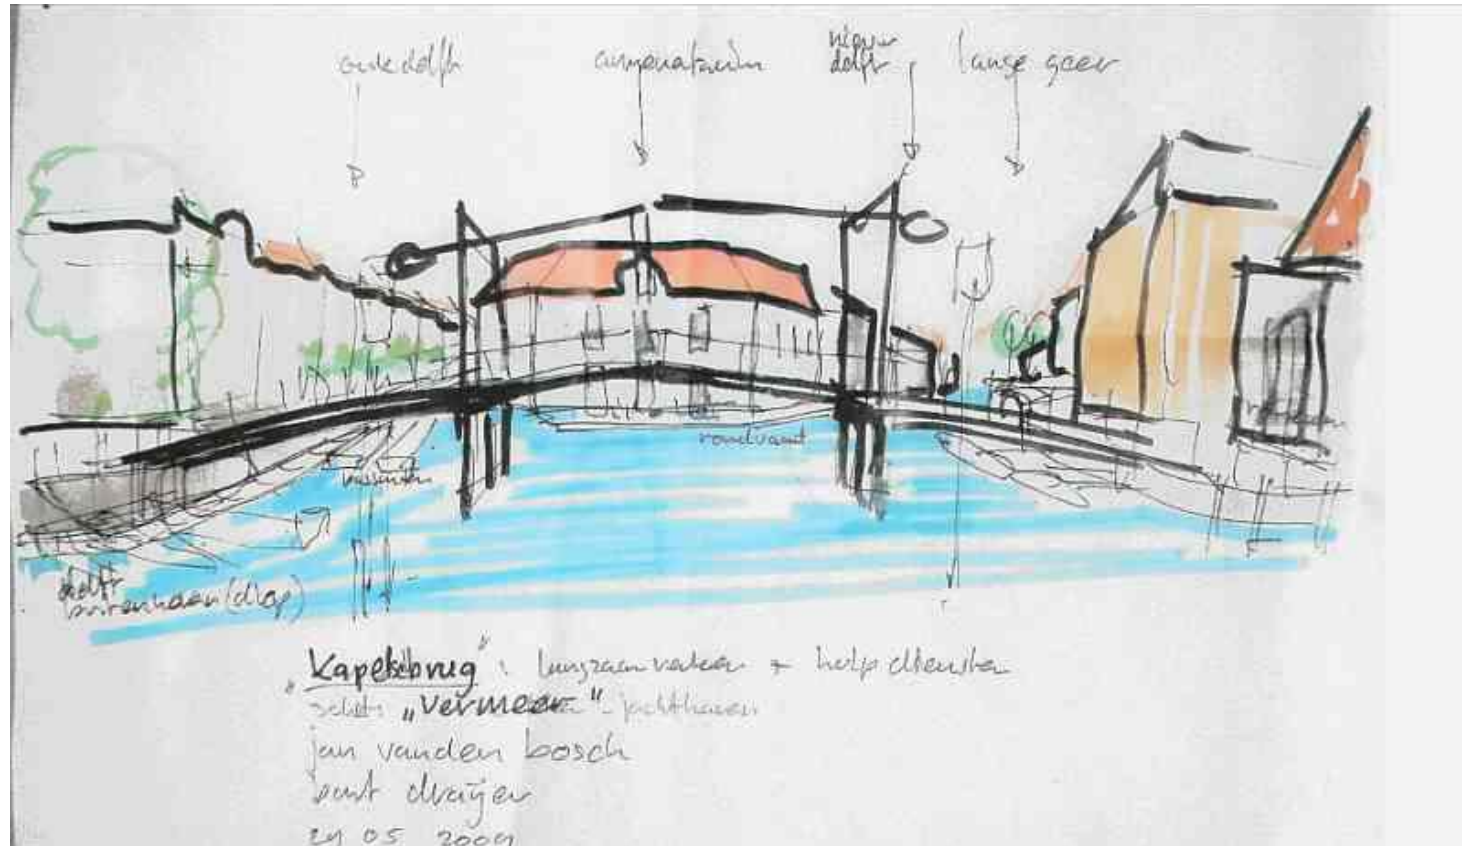 oude delft
nieuw
delft
lange geer
rondvaart
delft
buitenhaven (dlap)
"Kapelsbrug": langzaam verkeer + hulpdiensten
schets "Vermeer"-jachthaven
jan vanden bosch
bart draijer
29 05 2009